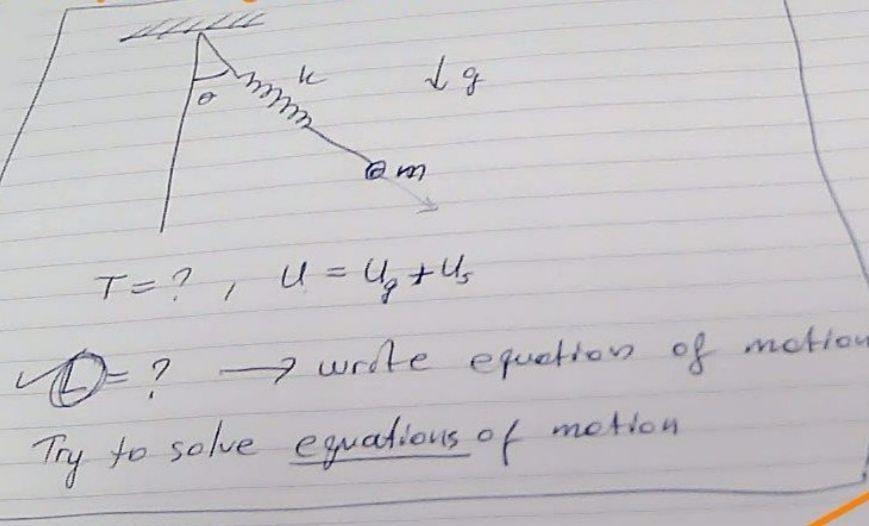 k
↓ g
θ
m
T = ? , U = Ug + Us
L = ? → write equation of motion
Try to solve equations of motion